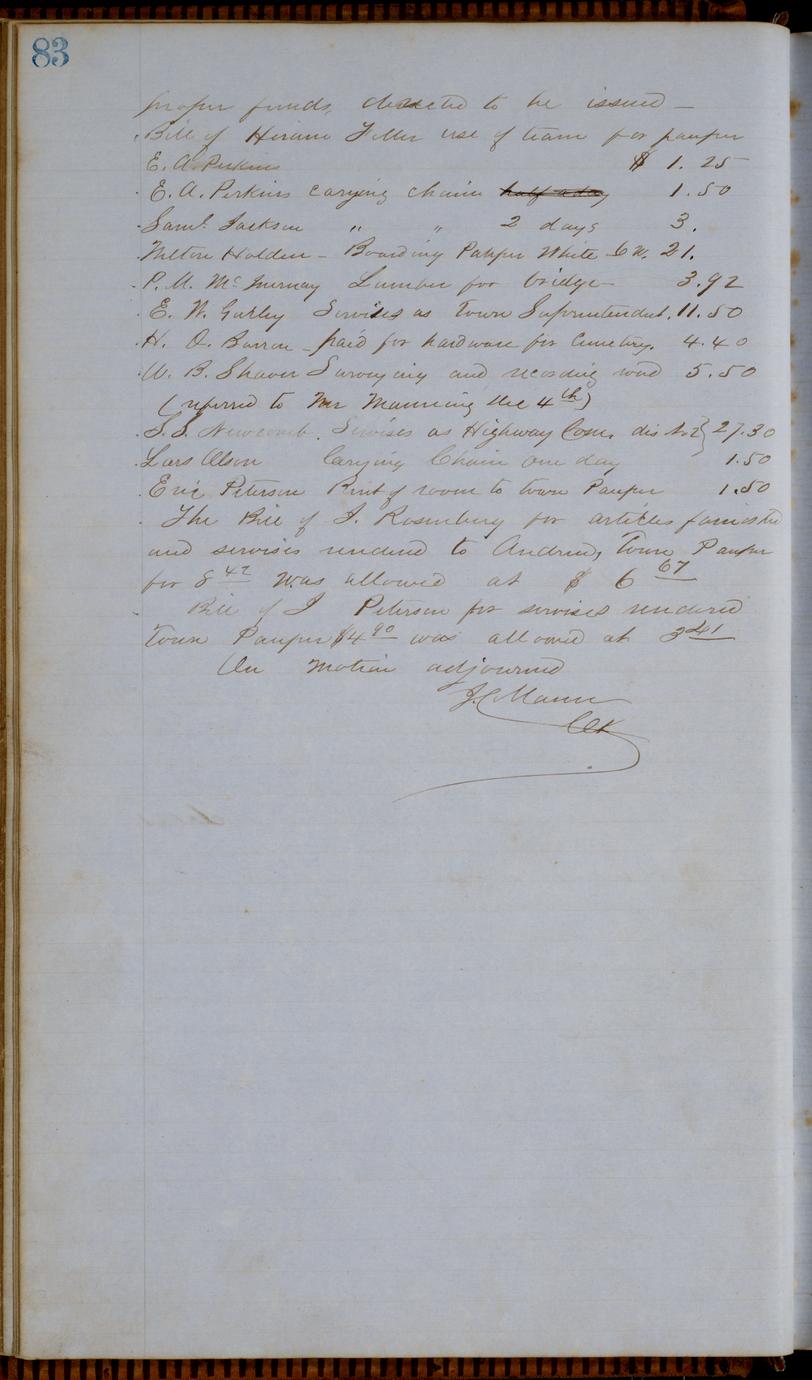 83
proper funds, directed to be issued —
Bill of Hiram Fuller use of team for pauper
E. A. Perkins $ 1.25
E. A. Perkins carying chain half a day 1.50
Saml. Jackson " " 2 days 3.
Milton Holden - Boarding Pauper White 6 W. 21.
P. M. McInernay Lumber for bridge 3.92
E. W. Gurley Servises as Town Superintendent. 11.50
H. O. Barron - paid for hardware for Cemetery. 4.40
W. B. Shaver Surveying and recording road 5.50
(referred to Mr Manning Dec 4th)
S. S. Newcomb. Servises as Highway Com. dis No 2 } 27.30
Lars Olson Carying Chain one day 1.50
Eric Peterson Rent of room to town Pauper 1.50
The Bill of I. Rosenberg for articles furnished
and servises renderd to Andrews Town Pauper
for 8 42 was allowed at $ 6 67
Bill of J Peterson for servises rendered
Town Pauper $4 90 was allowed at 3 41
On motion adjourned
J. C. Mann
Clk